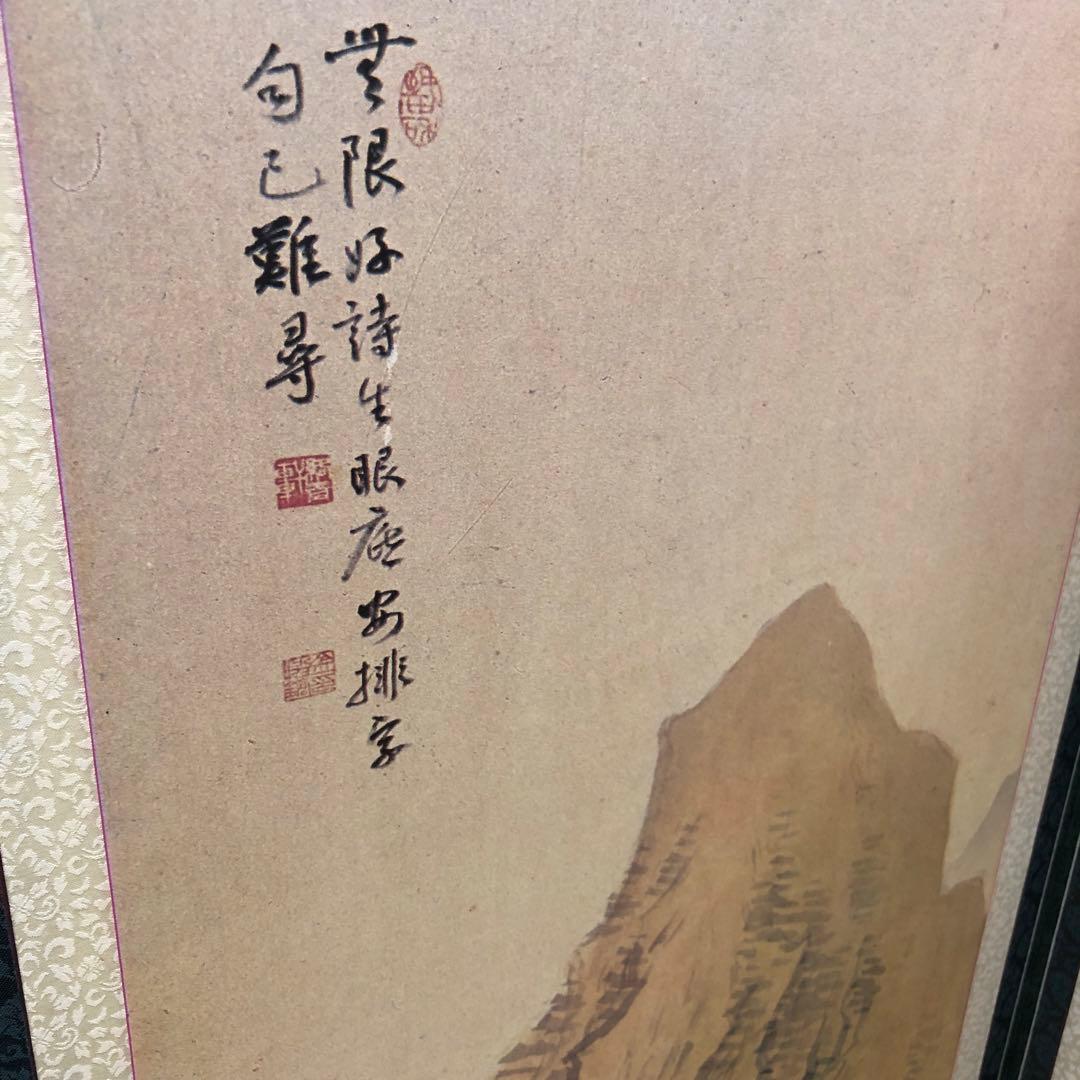 無限好詩生眼底安排字
句已難尋